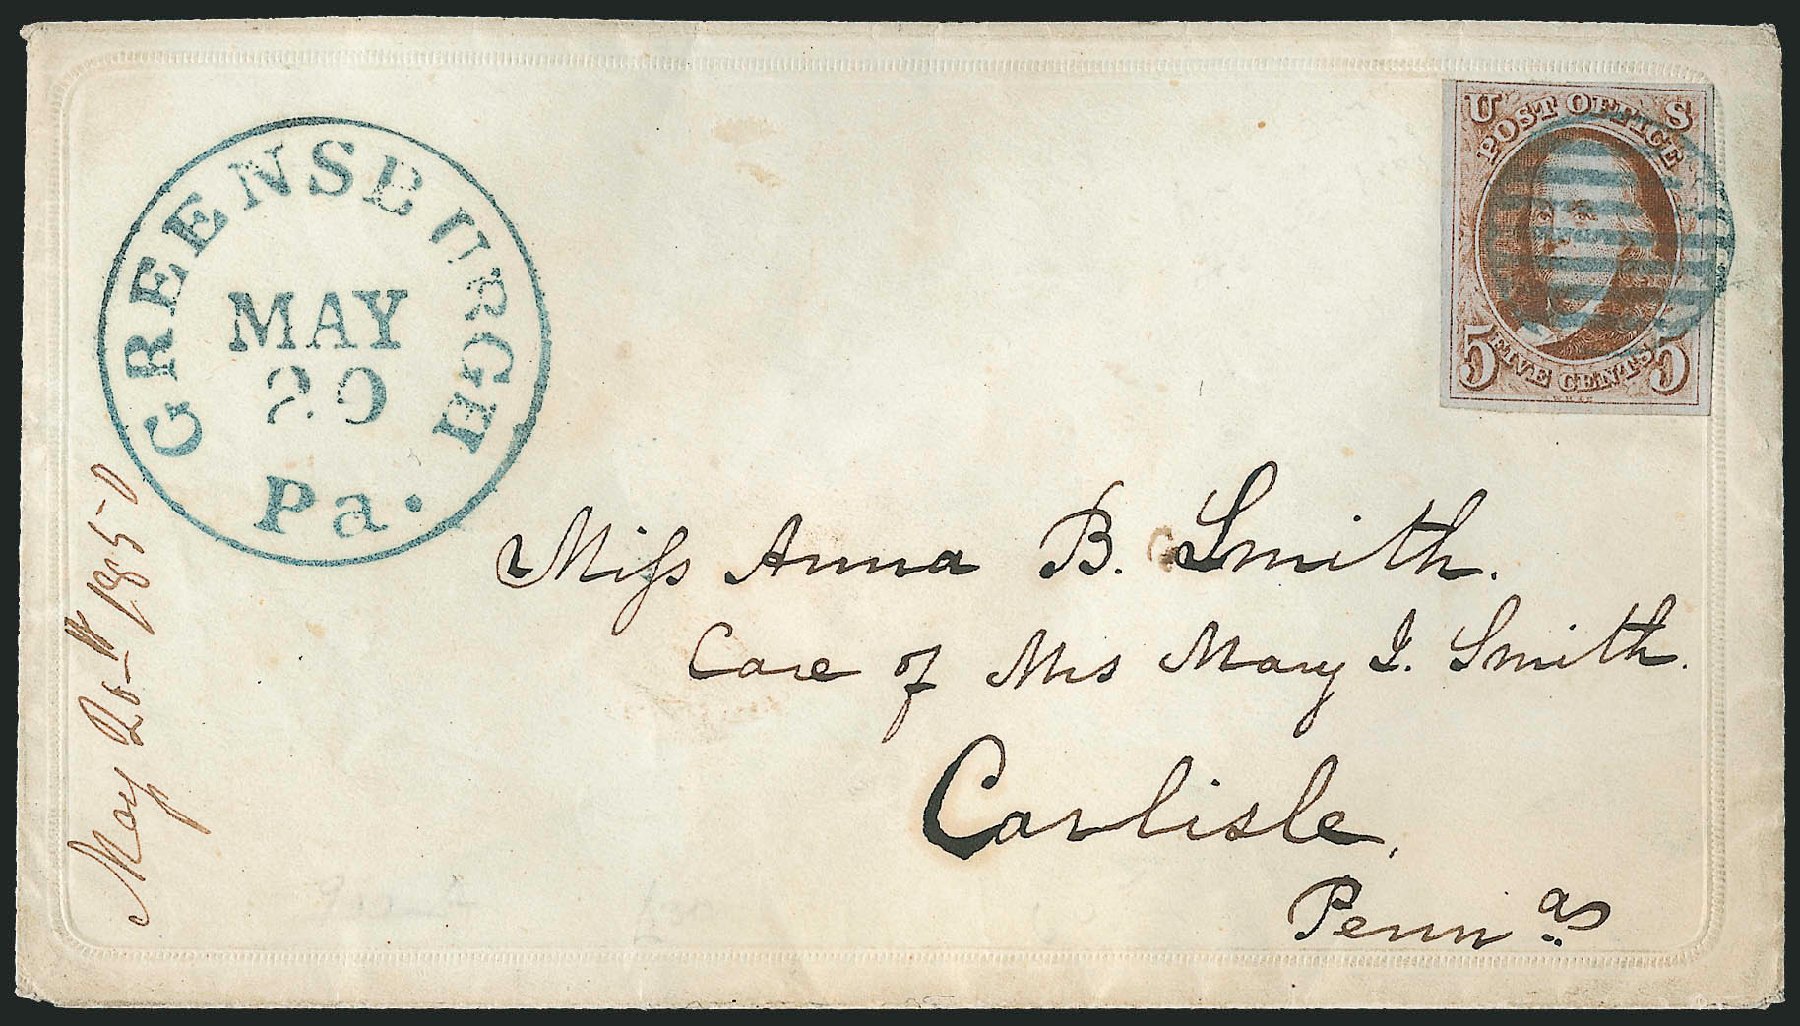 GREENSBURGH
MAY
20
Pa.
U S
POST OFFICE
5 FIVE CENTS 5
Miss Anna B. Smith.
Care of Mrs Mary J. Smith.
Carlisle,
Penn as
May 20 1850